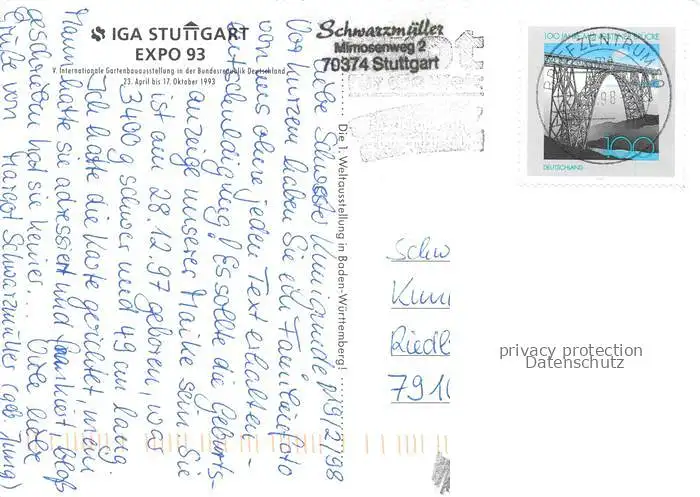 IGA STUTTGART
EXPO 93
V. Internationale Gartenbauausstellung in der Bundesrepublik Deutschland
23. April bis 17. Oktober 1993
Die 1. Weltausstellung in Baden-Württemberg!
Schwarzmüller
Mimosenweg 2
70374 Stuttgart
100 JAHRE MÜNGSTENER BRÜCKE
100
DEUTSCHLAND
BRIEFZENTRUM
98
Liebe Schwester Kunigunde 19/2/98
Vor kurzem haben Sie ein Familienfoto
von uns ohne jeden Text erhalten -
Entschuldigung! Es sollte die Geburts-
anzeige unserer Maike sein. Sie
ist am 28.12.97 geboren, wog
3400 g schwer und 49 cm lang.
Ich hatte die Karte gerichtet, mein
Mann hatte sie adressiert und frankiert bloß
geschrieben hat sie keiner. Viele liebe
Grüße von Margot Schwarzmüller (geb. Jung)
Schw
Kuni
Riedl
7910
privacy protection
Datenschutz